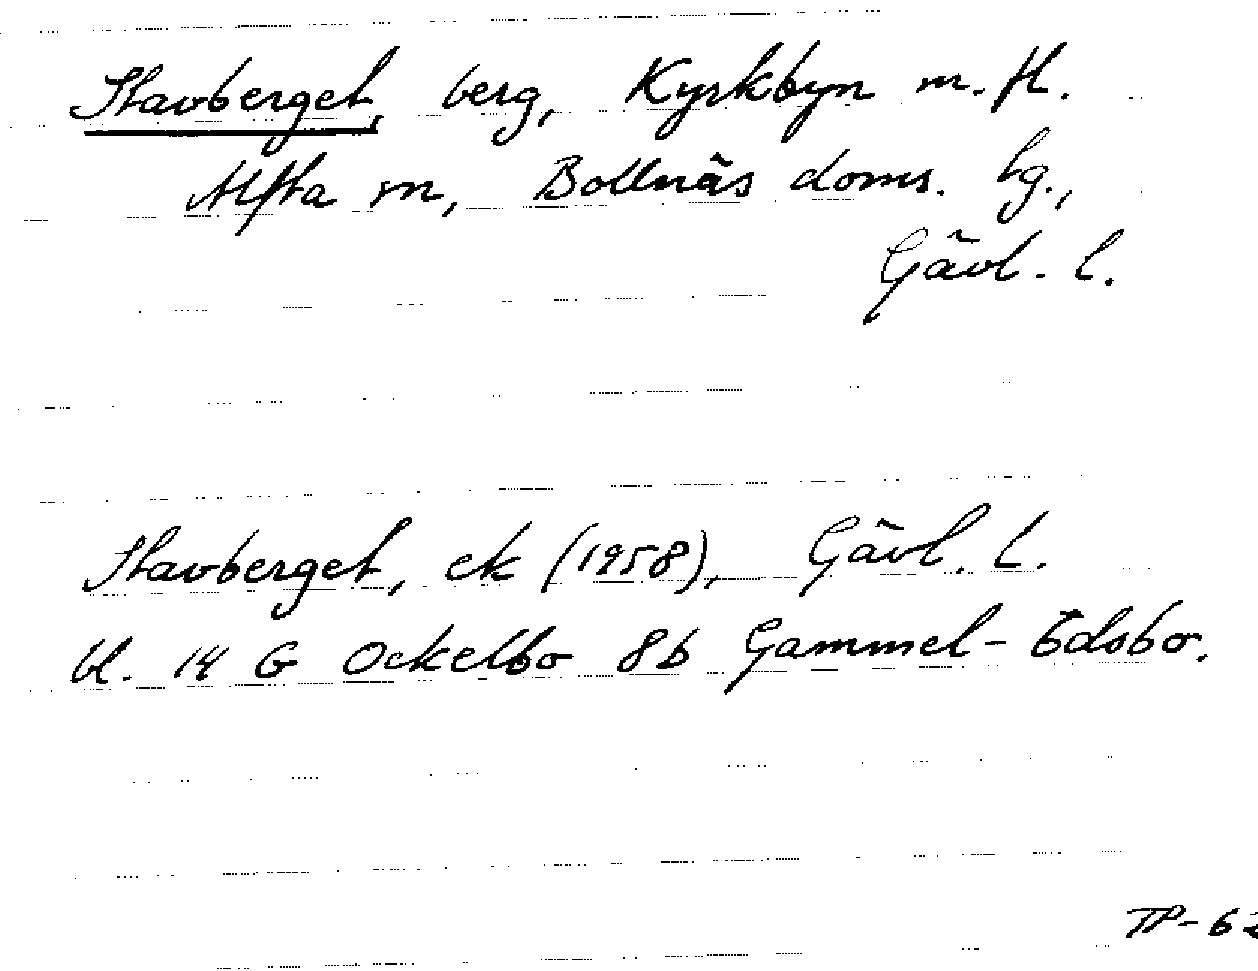 Stavberget, berg, Kyrkbyn m. fl.
Alfta sn, Bollnäs doms. tg.,
Gävl. l.
Stavberget, ek (1958), Gävl. l.
bl. 14 G Ockelbo 8b Gammel-Edsbo.
TP-62